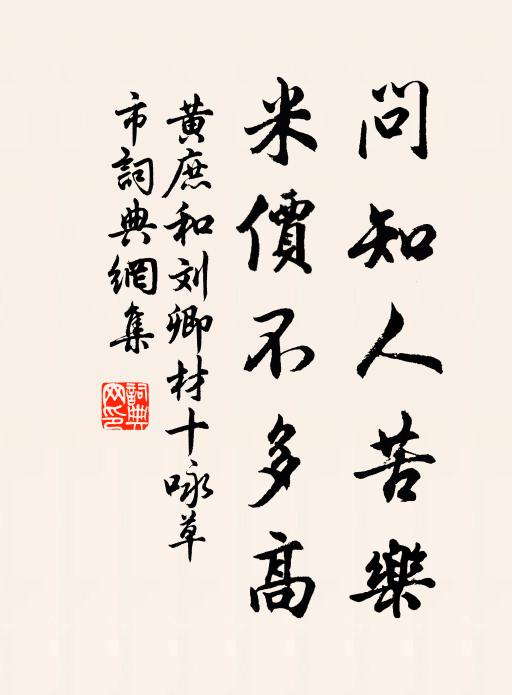 問知人苦樂
米價不多高
黄庶和刘卿材十咏草
市詞典網集
詞典
网印